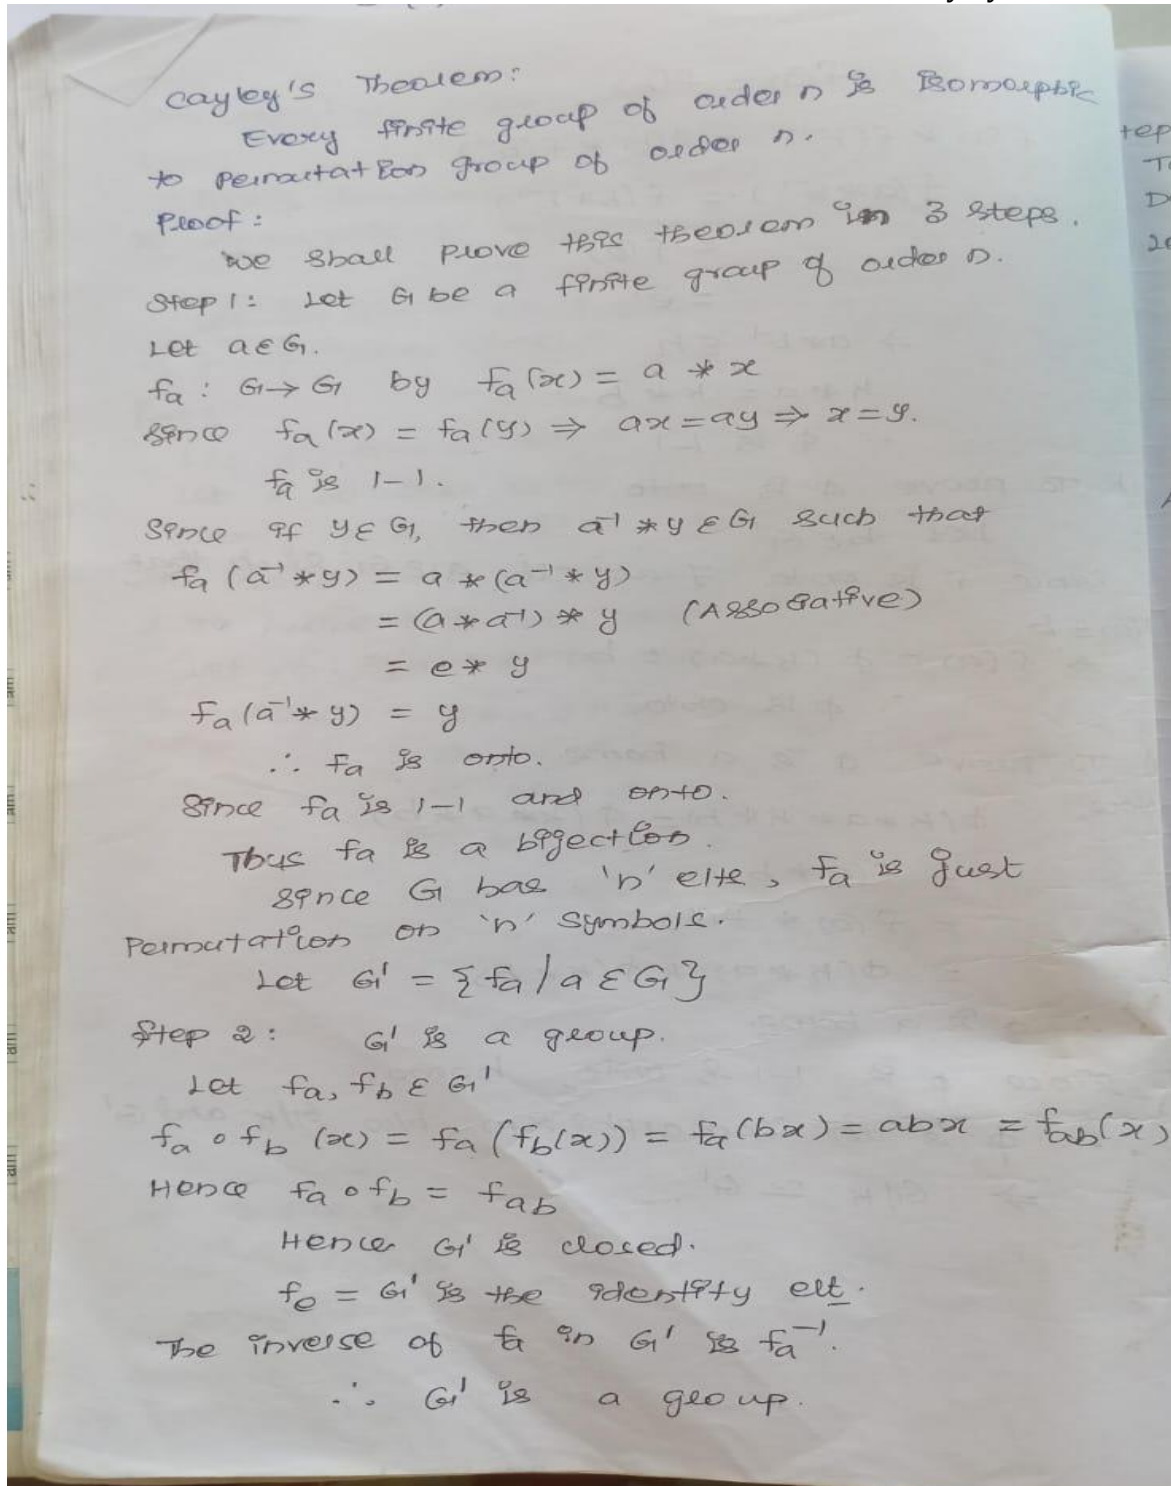 Cayley's Theorem:
Every finite group of order n is isomorphic
to permutation group of order n.
Proof:
We shall prove this theorem in 3 steps.
Step 1: Let G be a finite group of order n.
Let a ∈ G.
fₐ : G → G by fₐ(x) = a * x
Since fₐ(x) = fₐ(y) ⇒ ax = ay ⇒ x = y.
fₐ is 1-1.
Since if y ∈ G, then a⁻¹ * y ∈ G such that
fₐ(a⁻¹ * y) = a * (a⁻¹ * y)
= (a * a⁻¹) * y (Associative)
= e * y
fₐ(a⁻¹ * y) = y
∴ fₐ is onto.
Since fₐ is 1-1 and onto.
Thus fa is a bijection.
Since G has 'n' elts, fₐ is just
Permutation on 'n' symbols.
Let G' = {fₐ / a ∈ G}
Step 2: G' is a group.
Let fₐ, f_b ∈ G'
fₐ ∘ f_b (x) = fₐ(f_b(x)) = fₐ(bx) = abx = f_ab(x)
Hence fₐ ∘ f_b = f_ab
Hence G' is closed.
fₑ = G' is the identity elt.
The inverse of fₐ in G' is fₐ⁻¹.
∴ G' is a group.